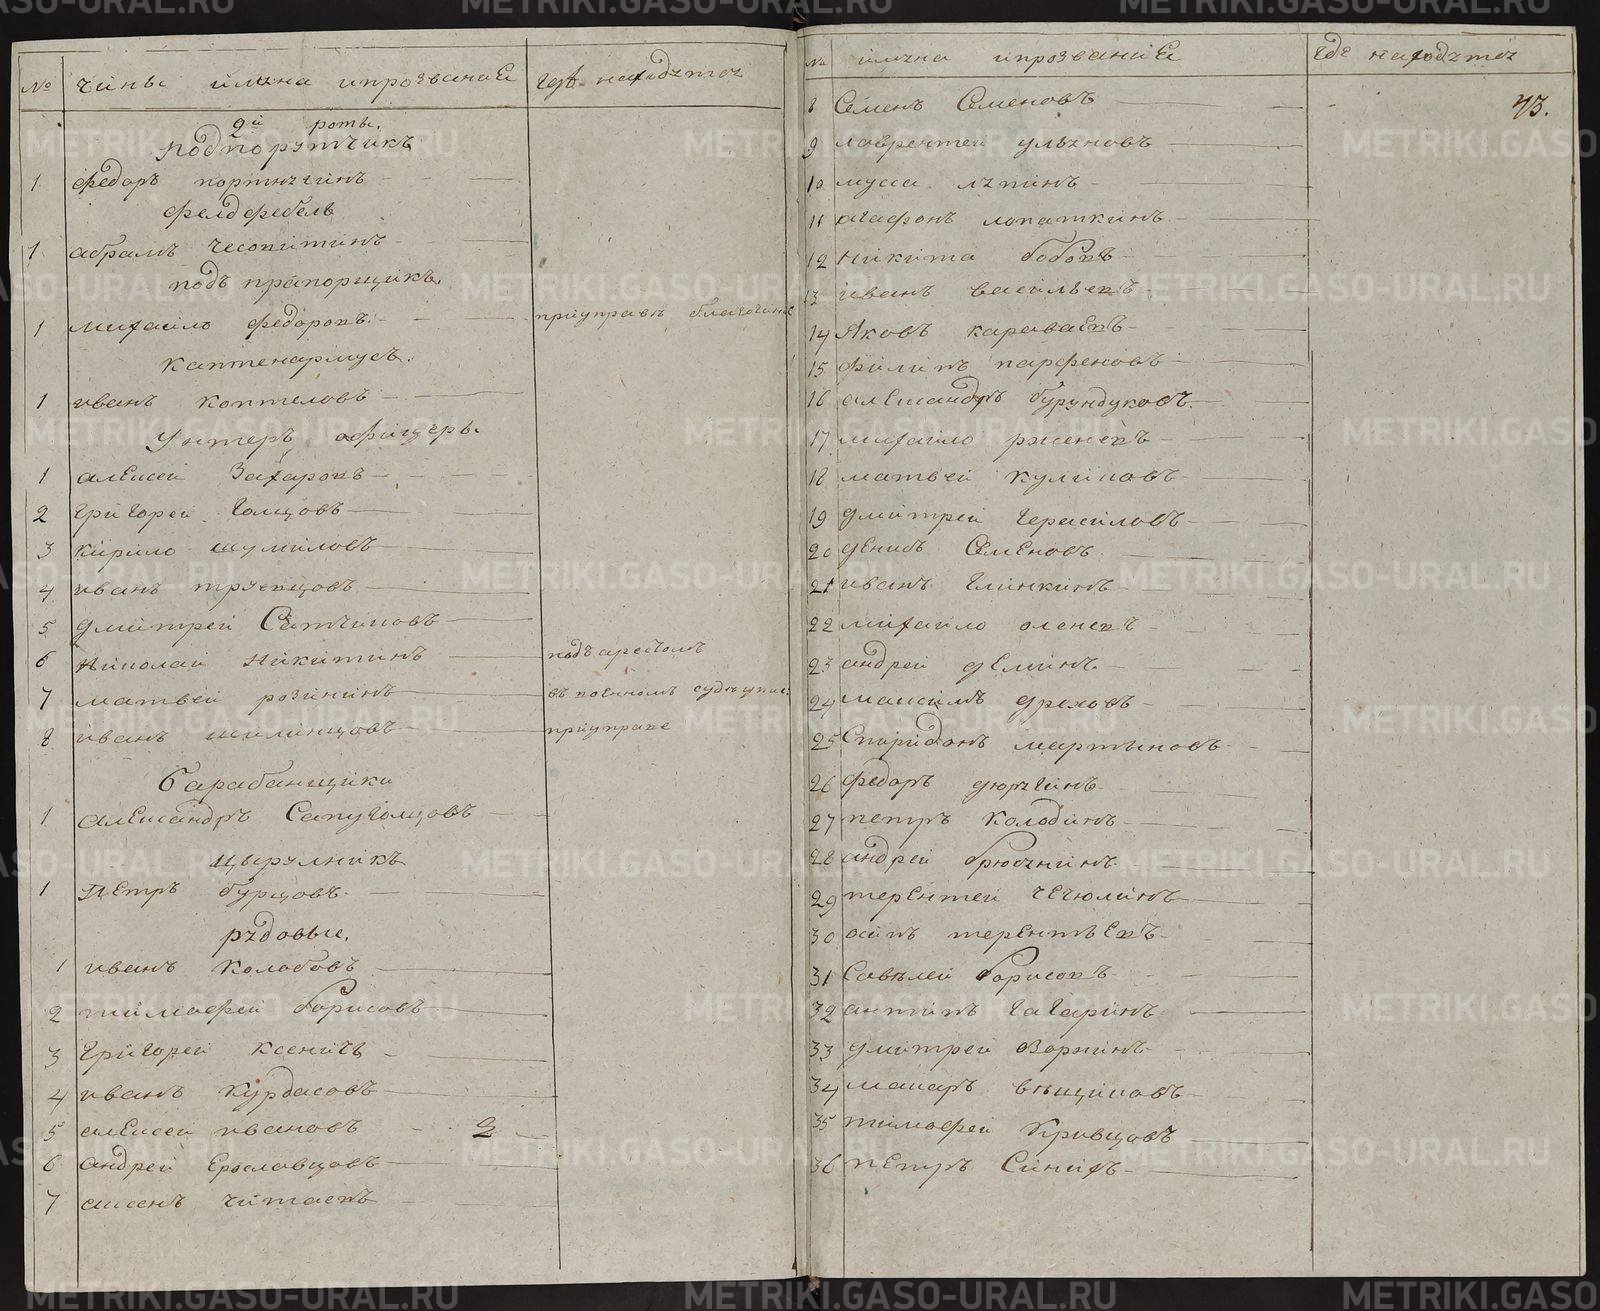 № чины имяна и прозвание где находятся
2й роты.
подпорутчикъ
1 федоръ портнягинъ
фелдфебель
1 абрамъ чесопитинъ
подъ прапорщикъ.
1 михаило федоровъ при управе благочиния
каптенармусъ.
1 иванъ коптеловъ
Унтеръ офицеры.
1 алексей Захаровъ
2 григорей Голцовъ
3 кирило шумиловъ
4 иванъ трубцовъ
5 дмитрей Сетчиковъ
6 николай никитинъ подъ арестомъ
7 матвей розининъ в военномъ суде
8 иванъ шилинцовъ при управе
барабанщики
1 александръ Сапуголцовъ
цырулникъ
1 петръ бурцовъ
рядовые.
1 иванъ колобовъ
2 тимофей борисовъ
3 григорей ксеничъ
4 иванъ курбасовъ
5 алексей ивановъ 2
6 андрей Ерославцовъ
7 семенъ читаевъ
№ имяна и прозвание где находятся
73.
8 Семенъ Семеновъ
9 лаврентей ульяновъ
10 мусса лапинъ
11 агафонъ лопаткинъ
12 никита бобовъ
13 иванъ васильевъ
14 яковъ караваевъ
15 филипъ парфеновъ
16 александръ бурундуковъ
17 михаило рженевъ
18 матвей куликовъ
19 дмитрей герасимовъ
20 денисъ Семеновъ
21 иванъ глинкинъ
22 михаило оленевъ
23 андрей деминъ
24 максимъ ореховъ
25 Спиридонъ мартыновъ
26 федоръ дюрягинъ
27 петръ колодинъ
28 андрей брюснинъ
29 терентей чечюлинъ
30 осипъ терентьевъ
31 Савелей борисовъ
32 антипъ гагаринъ
33 дмитрей ворнинъ
34 макаръ вещиковъ
35 тимофей кривцовъ
36 петръ Синихъ
METRIKI.GASO-URAL.RU